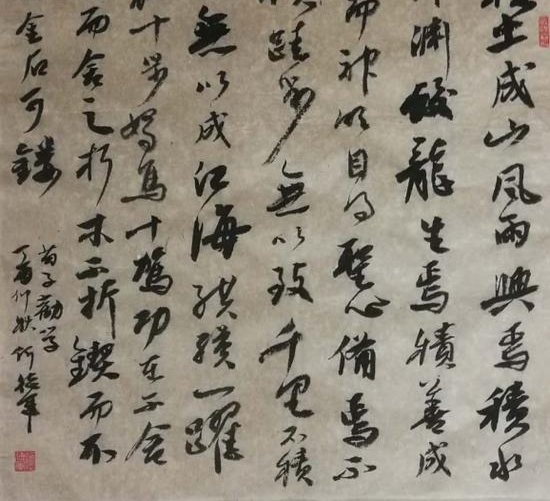 土成山風雨興焉積水
渊蛟龍生焉積善成
而神明自得聖心備焉不
跬步無以致千里不積
無以成江海騏驥一躍
十步駑馬十駕功在不舍
而舍之朽木不折鍥而不
金石可鏤
荀子勸学
丁酉仲秋